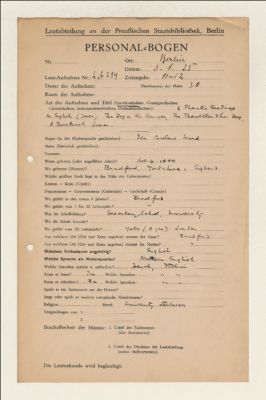 Lautabteilung an der Preußischen Staatsbibliothek, Berlin
PERSONAL-BOGEN
Nr. Ort: Berlin
Datum: 3. 1. 25
Laut-Aufnahme Nr.: Zeitangabe: 11-12
Dauer der Aufnahme: Durchmesser der Platte: 30
Raum der Aufnahme:
Art der Aufnahme und Titel
in English The Dog in the Manger, The
Name (in der Muttersprache geschrieben): Ida Caroline Ward
Name (lateinisch geschrieben):
Wann geboren (oder ungefähres Alter)? Oct. 4. 1880
Wo geboren (Heimat)? Bradford, Yorkshire, England
Welche größere Stadt liegt in der Nähe des Geburtsortes?
Kanton — Kreis (Ujedz):
Department — Gouvernement (Gubernija) — Grafschaft (County):
Wo gelebt in den ersten 6 Jahren? Bradford
Wo gelebt vom 7. bis 20. Lebensjahr?
Was für Schulbildung? Secondary School, University
Wo die Schule besucht?
Wo gelebt vom 20. Lebensjahr? London
Aus welchem Ort (Ort und Kreis angeben) stammt der Vater? Bradford
Aus welchem Ort (Ort und Kreis angeben) stammt die Mutter?
Welchem Volksstamm angehörig? English
Welche Sprache als Muttersprache? English
Welche Sprachen spricht er außerdem? French, German
Kann er lesen? Ja Welche Sprachen?
Kann er schreiben? Ja Welche Sprachen?
Spielt er ein Instrument aus der Heimat?
Singt oder spielt er modern europäische Musikweisen?
Religion: Beruf: University Lecturer
Vorgeschlagen von: 1.
2.
Beschaffenheit der Stimme: 1. Urteil des Fachmannes
(des Assistenten):
2. Urteil des Direktors der Lautabteilung
(seines Stellvertreters):
Die Lauturkunde wird beglaubigt: